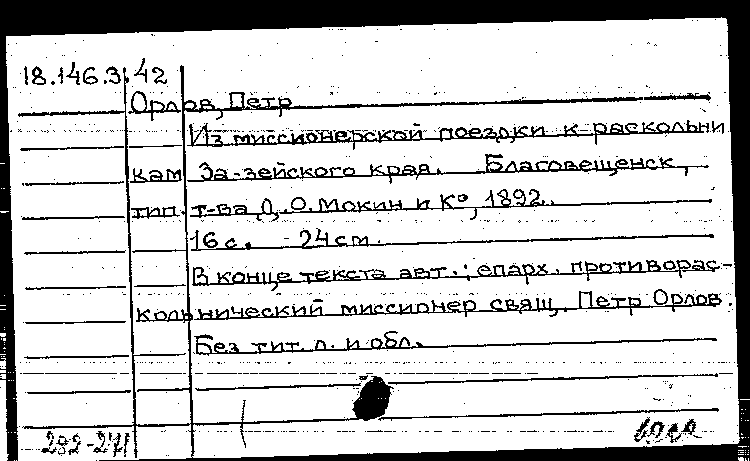 18.146.3.42
Орлов, Петр
Из миссионерской поездки к раскольни
кам За-зейского края. Благовещенск,
тип. т-ва Д.О. Мокин и К°, 1892.
16 с. 24 см.
В конце текста авт.: епарх. противорас-
кольнический миссионер свящ. Петр Орлов.
Без тит. л. и обл.
282-271